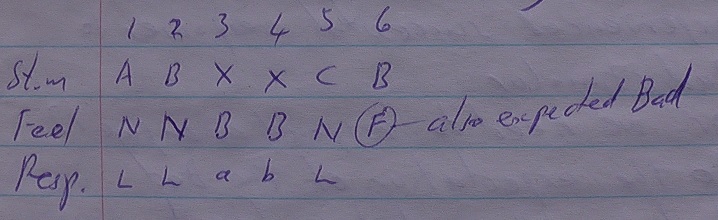 1 2 3 4 5 6
Stim A B X X C B
Feel N N B B N F - also expected Bad
Resp. L L a b L